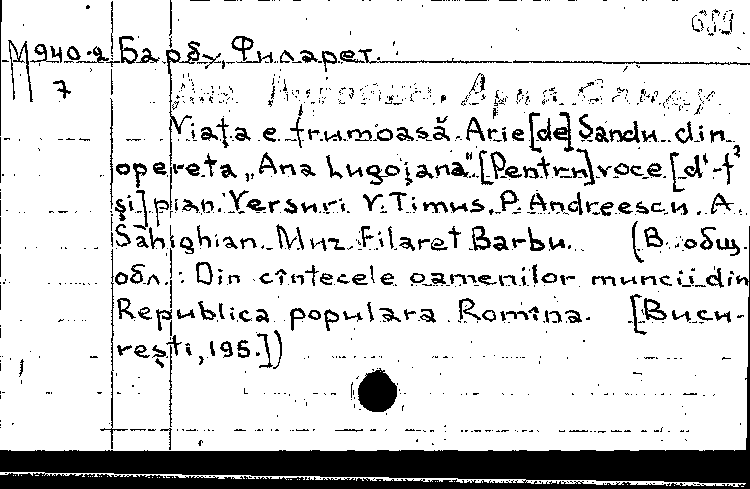 689
М940-2 Барбу, Филарет.
7
Ана Лугожана. Ария Санду
Viaţa e frumoasă. Arie [de] Sandu din
opereta „Ana Lugojana". [Pentru] voce [d'-f²
şi] pian. Versuri V. Timus, P. Andreescu, A.
Sahighian. Muz Filaret Barbu. (В общ.
обл.: Din cîntecele oamenilor muncii din
Republica populara Romîna. [Bucu-
reşti, 195.])